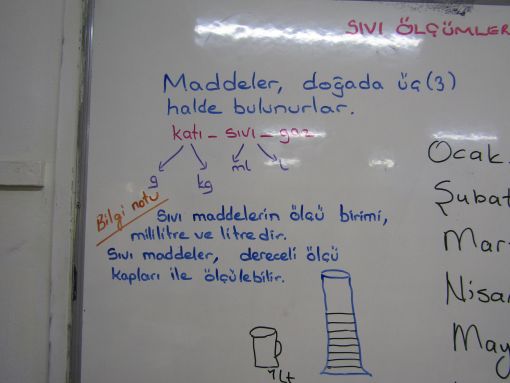 SIVI ÖLÇÜMLER
Maddeler, doğada üç (3)
halde bulunurlar.
katı - sıvı - gaz
g kg ml L
Bilgi notu
Sıvı maddelerin ölçü birimi,
mililitre ve litredir.
Sıvı maddeler, dereceli ölçü
kapları ile ölçülebilir.
1Lt
Ocak
Şubat
Mar
Nisa
May